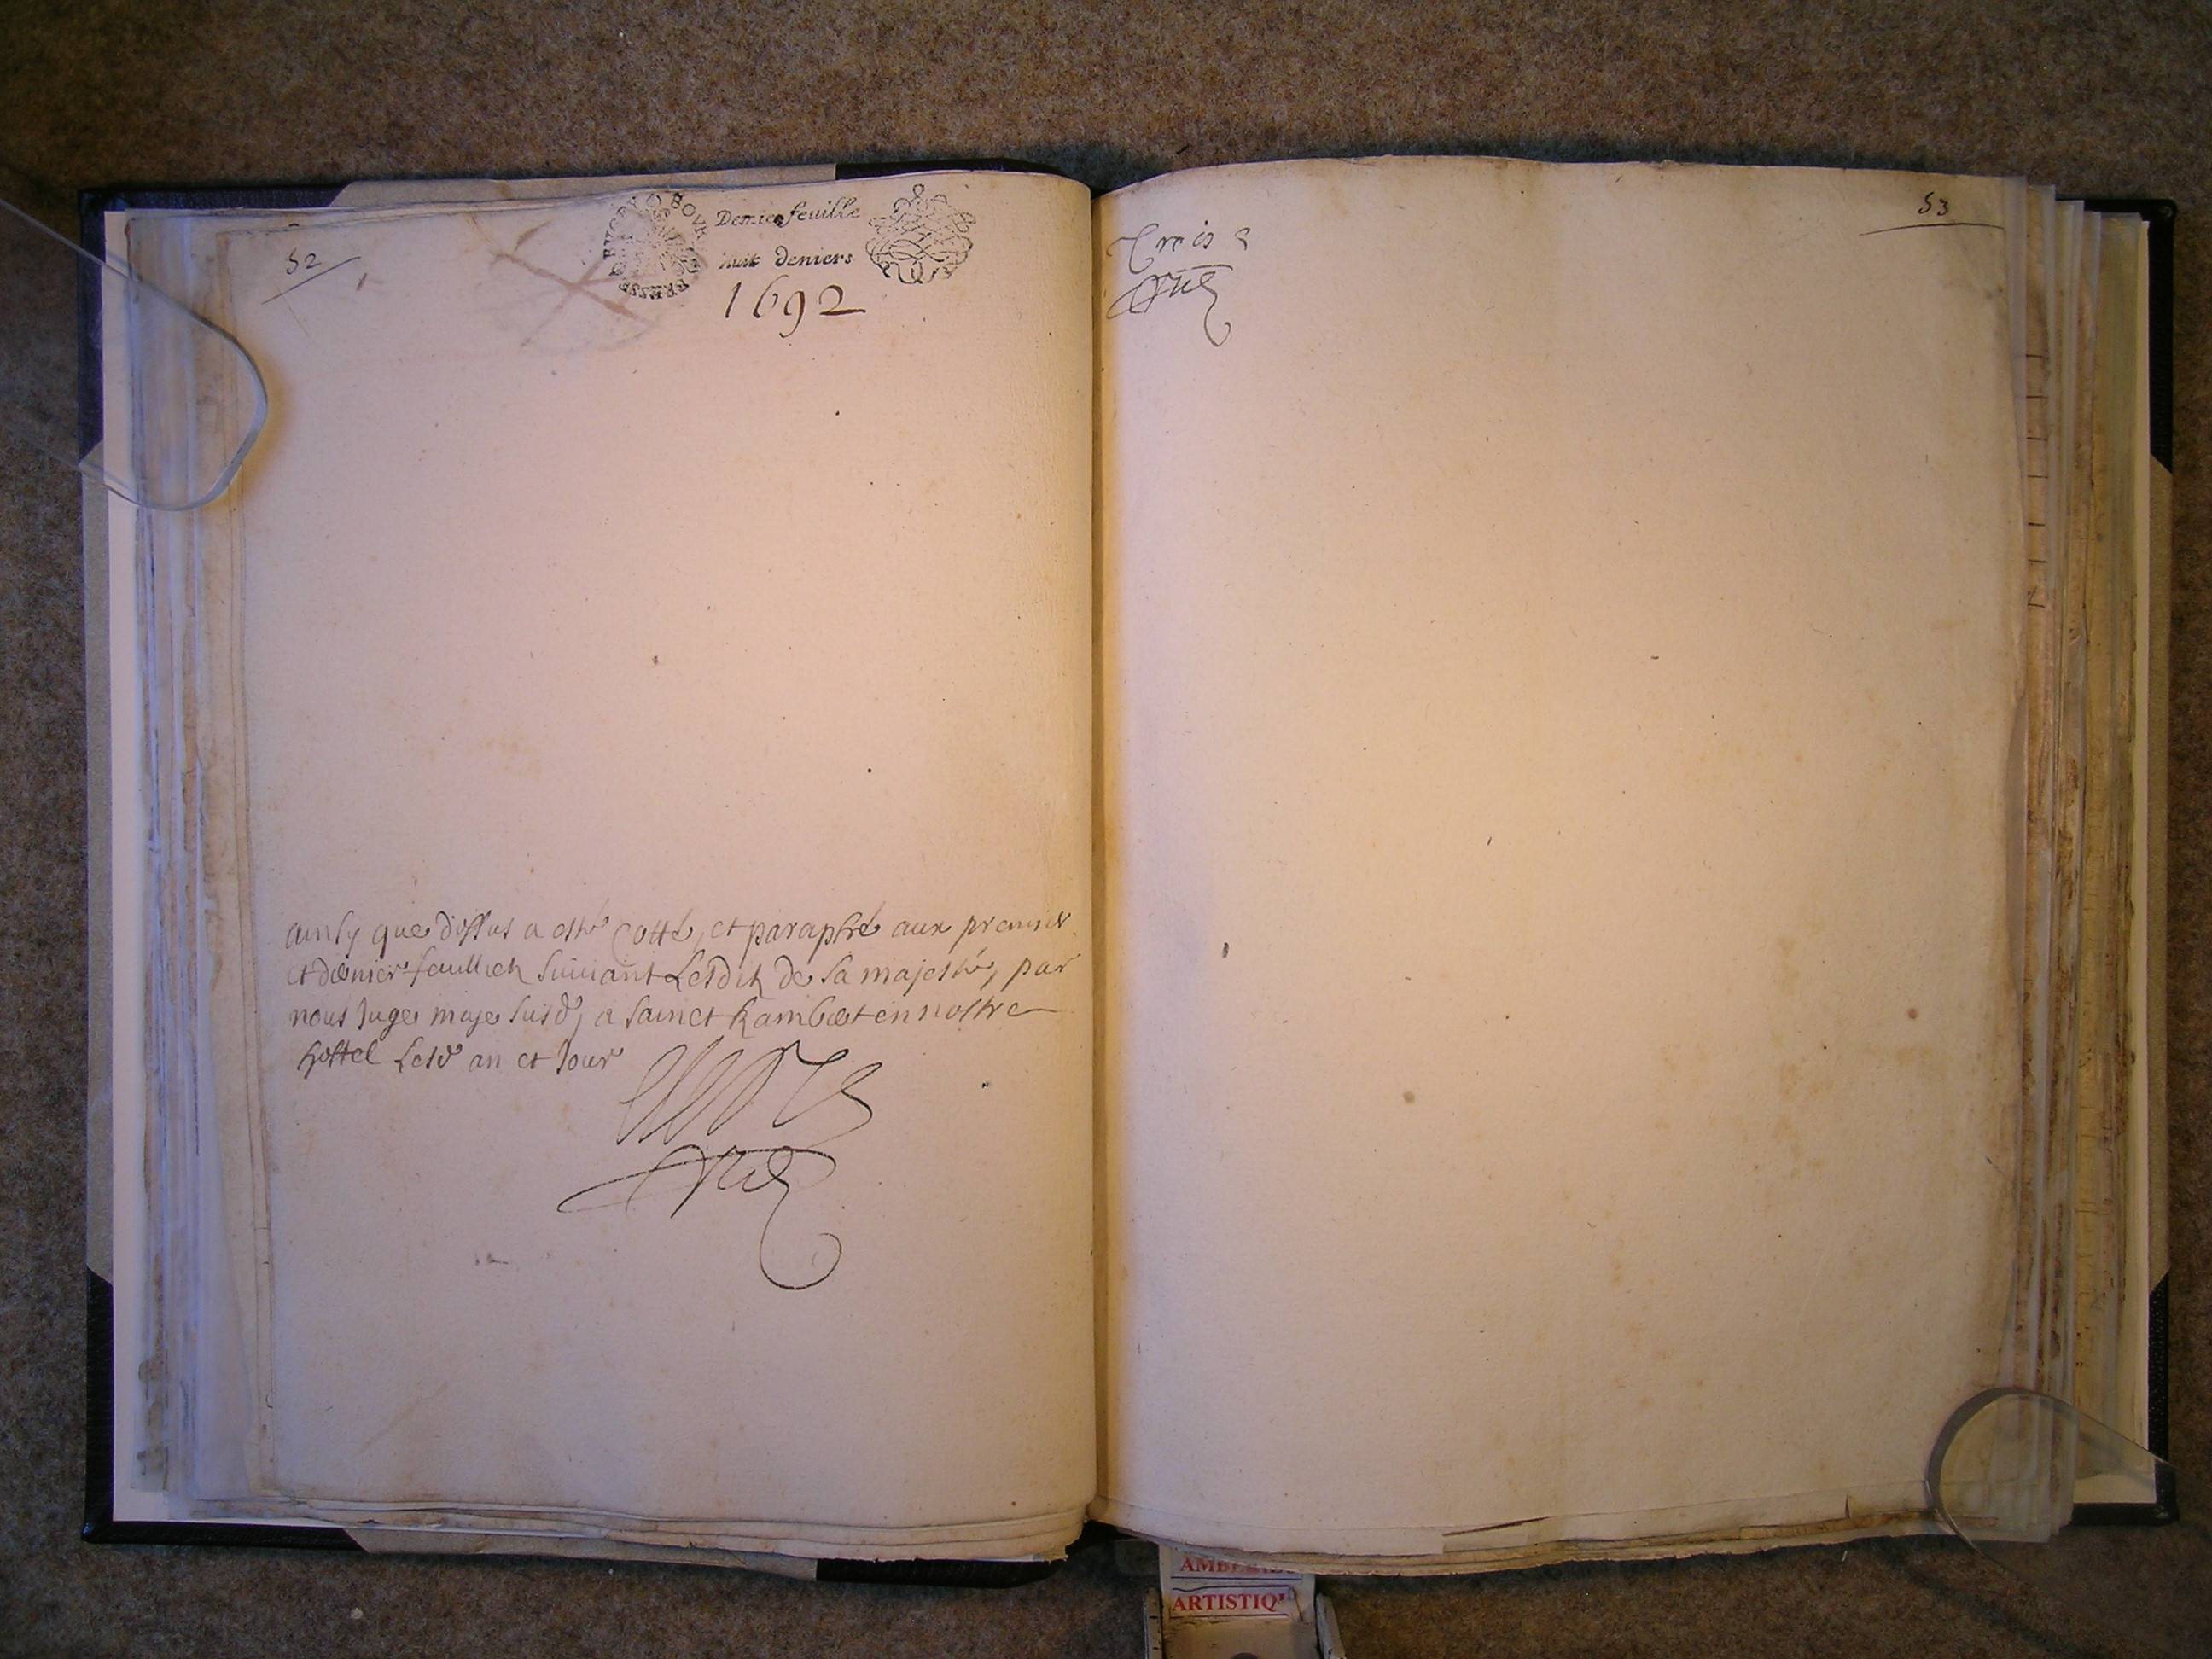 52
Demie feuille
huit deniers
1692
ainsy que dessus a esté Cotté, et paraphé aux premier
et dernier feuillietz suivant Lesditz de sa majesté, par
nous Juge maje susd, a sainct Rambert en nostre
hostel Lesd an et Jour
53
Trois
AMB
ARTISTIQ